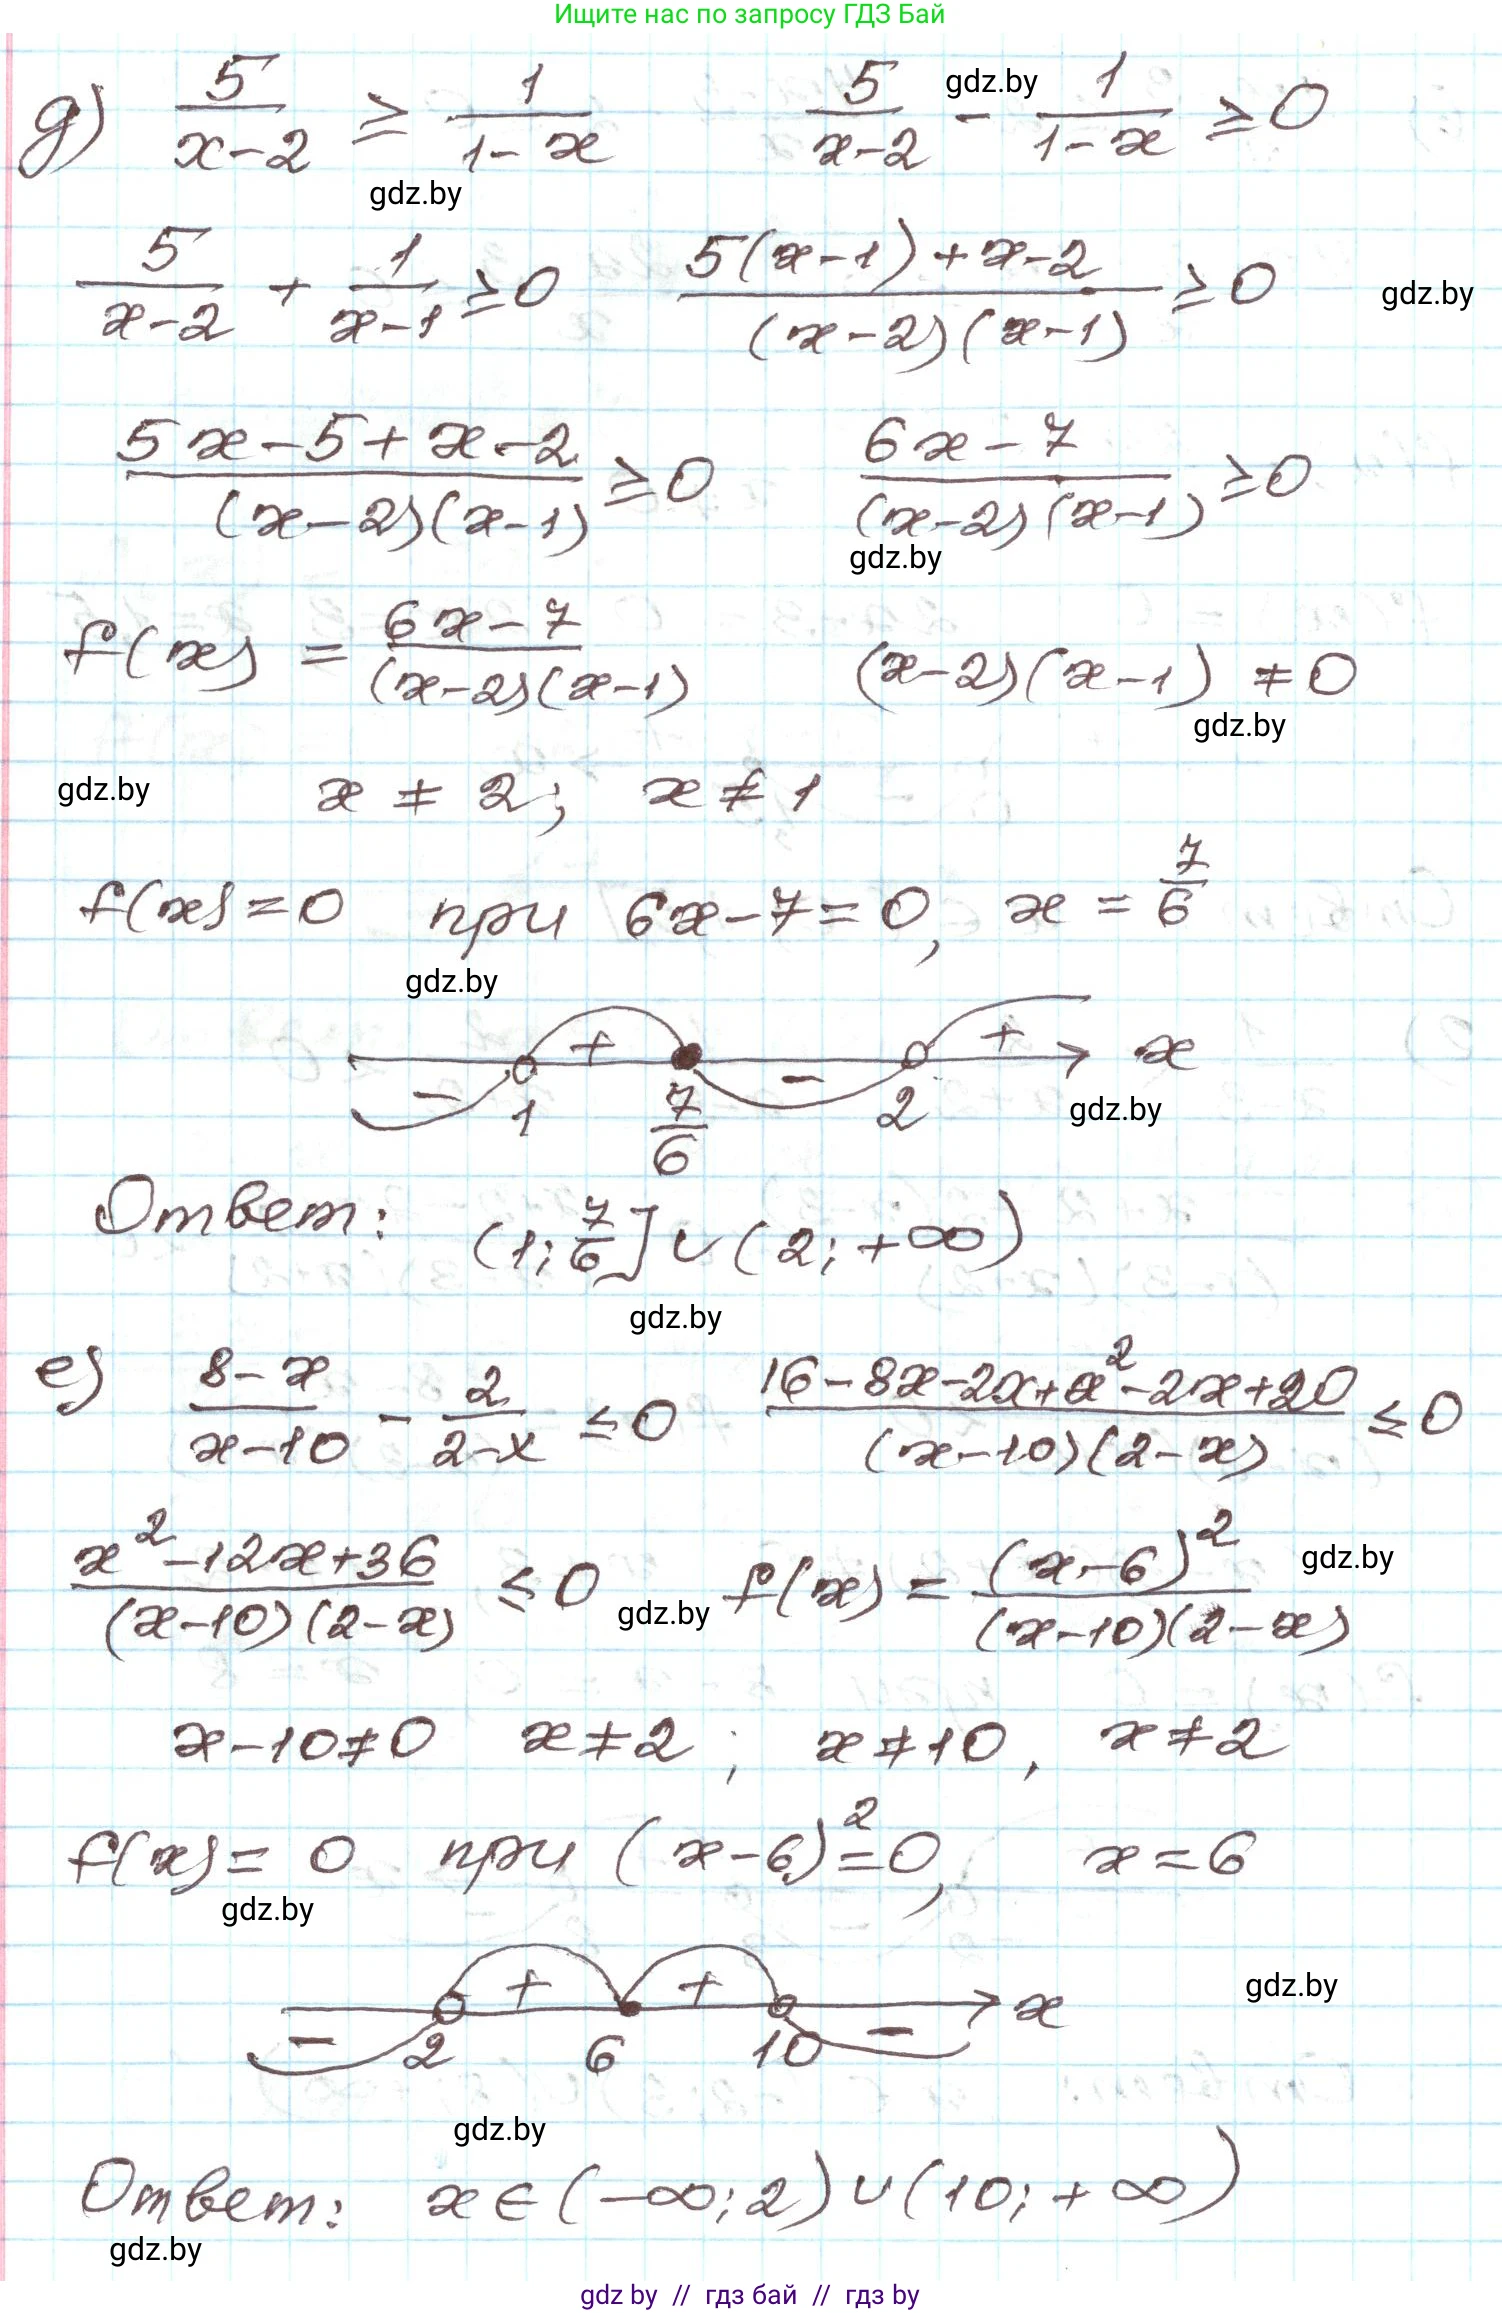 Ищите нас по запросу ГДЗ Бай
д) 5/(x-2) ≥ 1/(1-x)   5/(x-2) - 1/(1-x) ≥ 0
gdz.by
gdz.by
5/(x-2) + 1/(x-1) ≥ 0   (5(x-1)+x-2)/((x-2)(x-1)) ≥ 0
gdz.by
(5x-5+x-2)/((x-2)(x-1)) ≥ 0   (6x-7)/((x-2)(x-1)) ≥ 0
gdz.by
f(x) = (6x-7)/((x-2)(x-1))   (x-2)(x-1) ≠ 0
gdz.by
gdz.by
x ≠ 2; x ≠ 1
f(x)=0 при 6x-7=0, x = 7/6
gdz.by
- + - + x
1 7/6 2
gdz.by
Ответ: (1; 7/6] ∪ (2; +∞)
gdz.by
е) (8-x)/(x-10) - 2/(2-x) ≤ 0   (16-8x-2x+x²-2x+20)/((x-10)(2-x)) ≤ 0
(x²-12x+36)/((x-10)(2-x)) ≤ 0   f(x) = (x-6)²/((x-10)(2-x))
gdz.by
gdz.by
x-10≠0 x≠2; x≠10, x≠2
f(x)= 0 при (x-6)²=0, x=6
gdz.by
gdz.by
- + + - x
2 6 10
gdz.by
Ответ: x∈(-∞; 2) ∪ (10; +∞)
gdz.by
gdz by // гдз бай // гдз by